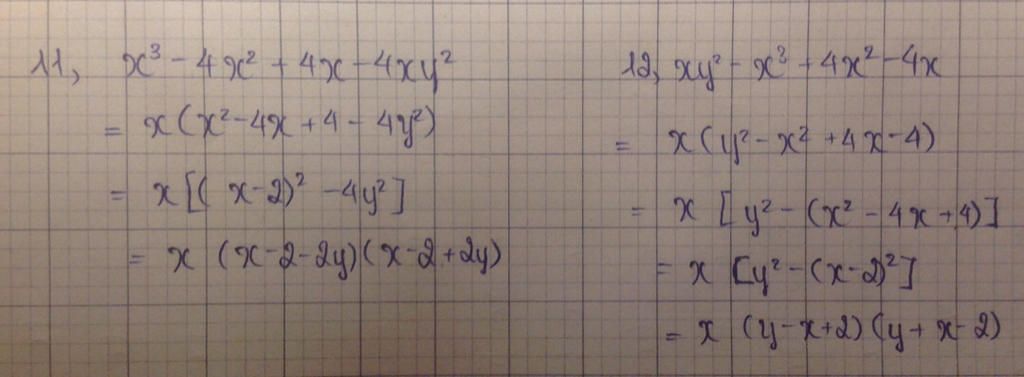 11, x³ - 4x² + 4x - 4xy²
= x(x² - 4x + 4 - 4y²)
= x[(x-2)² - 4y²]
= x (x-2-2y)(x-2+2y)
12, xy² - x³ + 4x² - 4x
= x(y² - x² + 4x - 4)
= x [y² - (x² - 4x + 4)]
= x [y² - (x-2)²]
= x (y-x+2)(y+x-2)